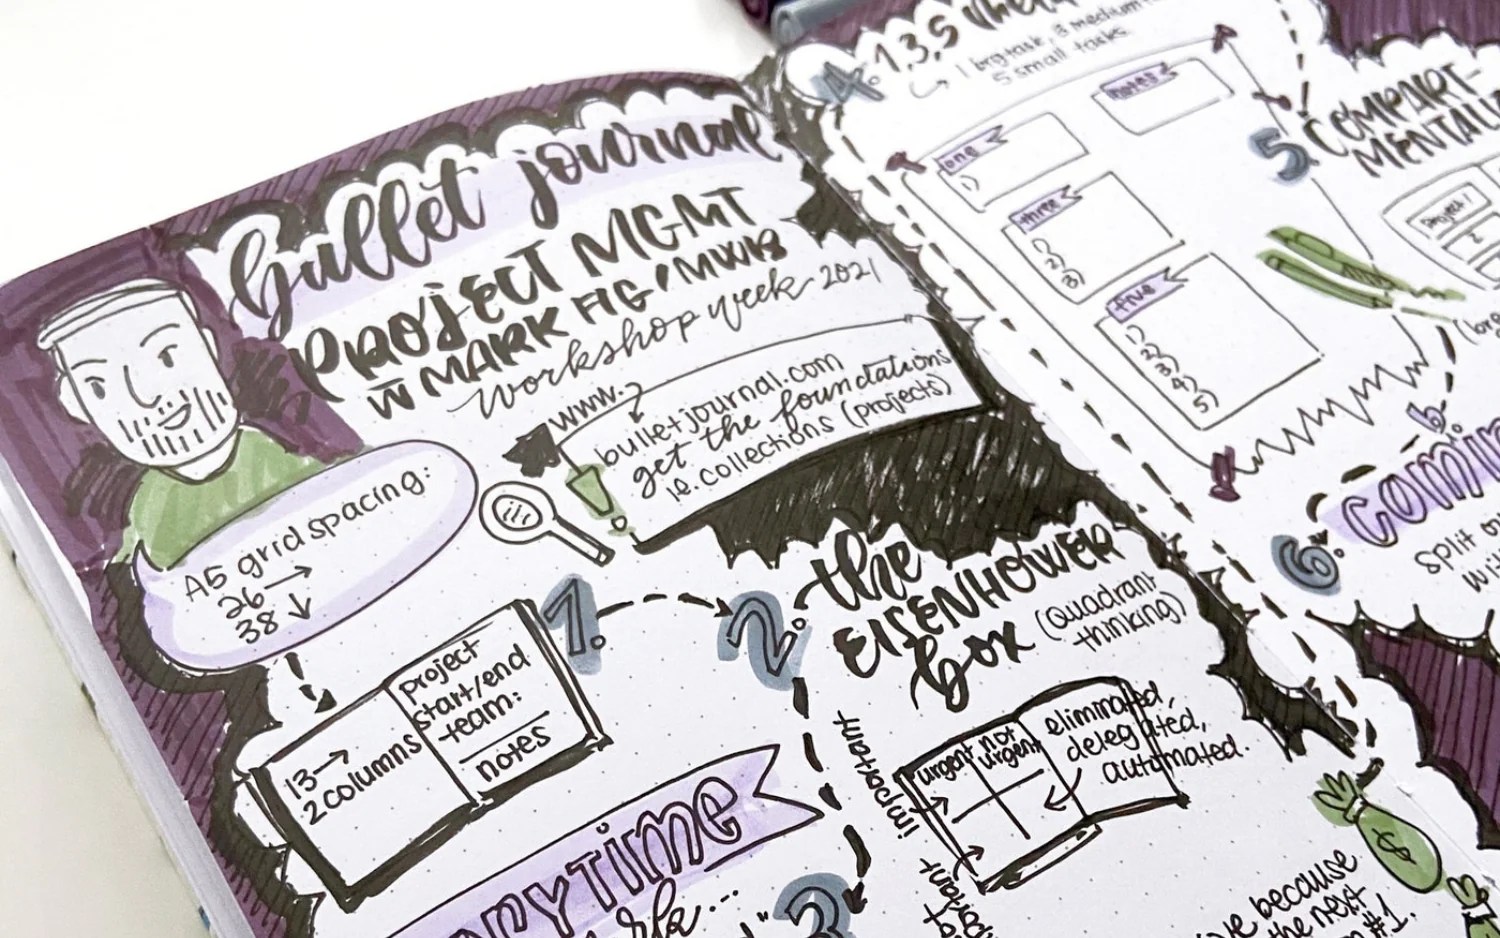 Bullet journal
PROJECT MGMT
W MARK FIG/MWIB
workshop week 2021
www.
bulletjournal.com
get the foundations
ie. collections (projects)
A5 grid spacing:
26 →
38 ↓
1.
13 →
2 columns
project
start/end
team:
notes
TIME
2.
the
EISENHOWER
box
(quadrant
thinking)
important
urgent
not
urgent
eliminated,
delegated,
automated.
3
because
the next
#1.
4. 1, 3, 5
1 big task, 3 medium
5 small tasks
notes
one
1)
three
1)
2)
3)
five
1)
2)
3)
4)
5)
5. COMPART-
project 1
6.
split